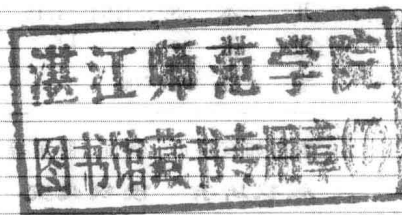 湛江师范学院
图书馆藏书专用章(7)